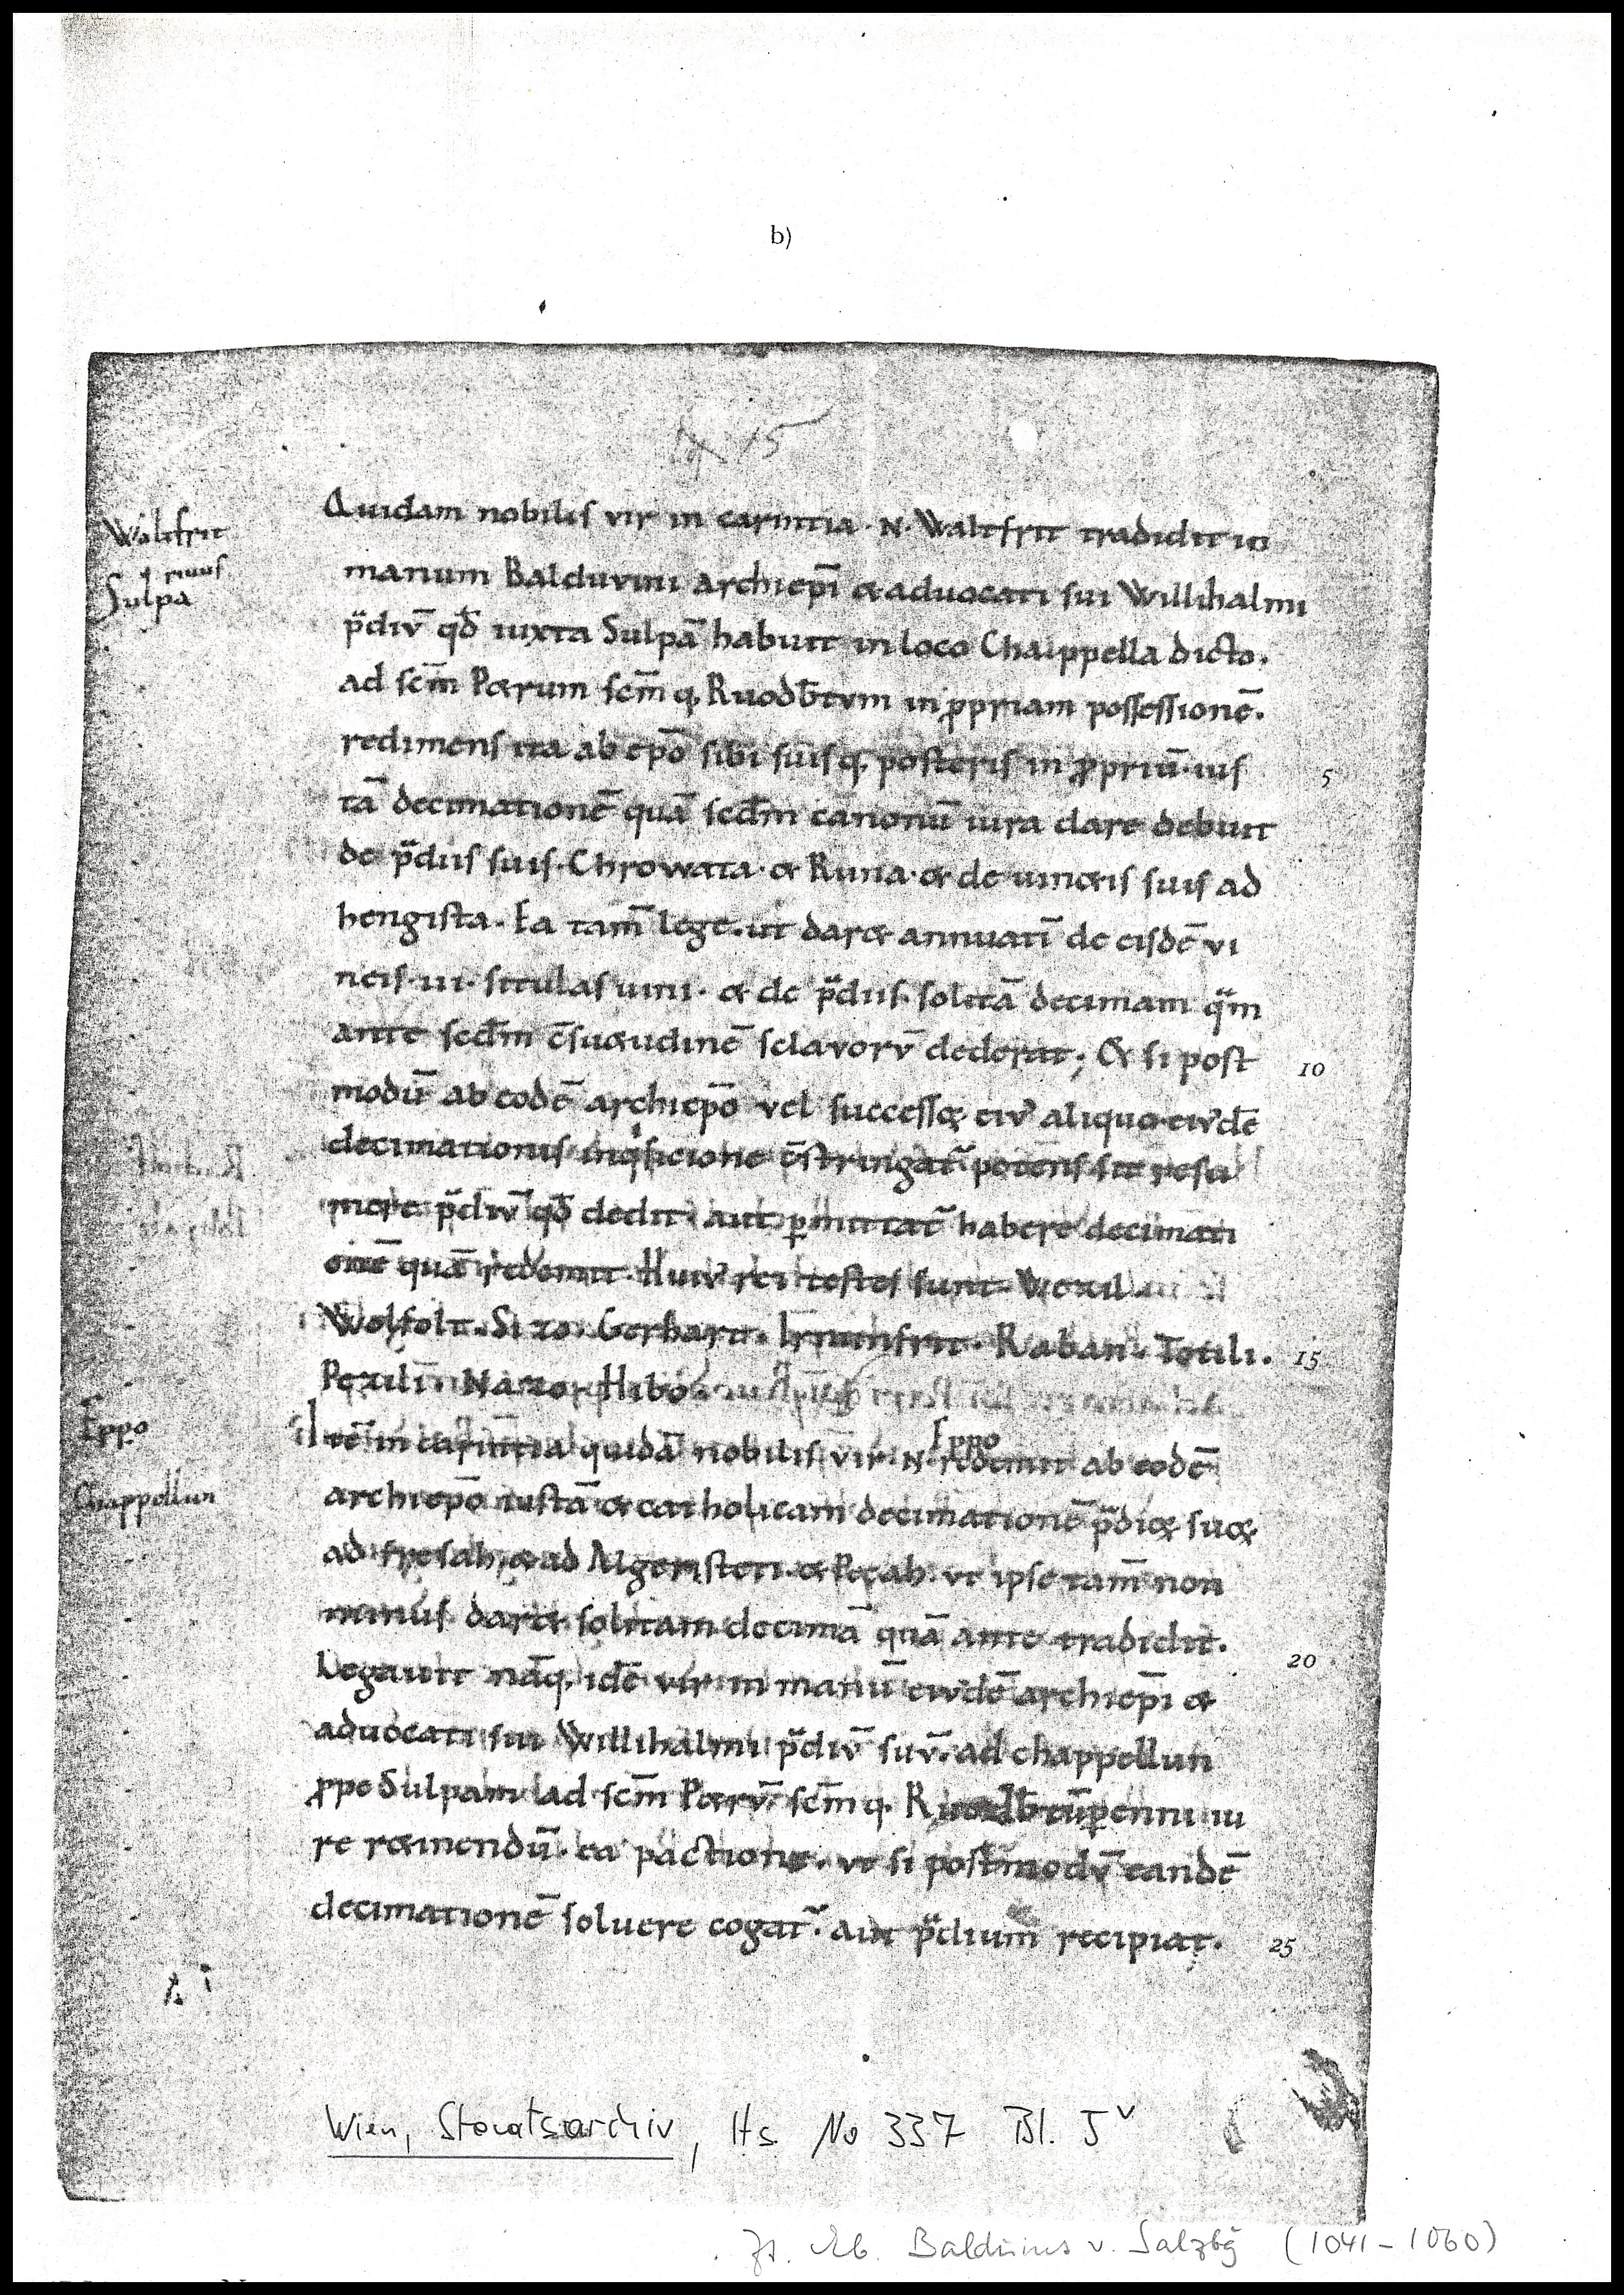 b)
15
Quidam nobilis vir in carintia · N · Waltfrit tradidit in
Waltfrit
manum Balduvini archiepī & aduocati sui Willihalmi
rivus
Sulpa
p̄div̄ qđ iuxta Sulpā habuit in loco Chappella dicto.
ad sc̄m Petrum sc̄m q, Ruodb̄tvm in ꝓpriam possessionē.
redimens ita ab epō sibi suisq, posteris in ꝓpriū ius
5
tā decimationē quā secd̄m canonū iura dare debuit
de p̄diis suis · Chrowata · & Runa · & de uineis suis ad
hengista. Ea tam̄ lege. ut daret annuatī de eisdē vi
neis · iii · situlas uini · & de p̄diis solitā decimam q̄m
ante secd̄m c̄suetudinē sclavorv̄ dederat; Et si post
10
modū ab eodē archiepō vel successoꝝ eiv' aliquo eiv'dē
decimationis inq'sicione c̄stringat' potens sit resu
mere p̄div̄ qđ dedit aut ꝑmittat' habere decimati
onē quā redemit. Huiv' rei testes sunt Wezil
Wolfolt. Sizo. Gerhart. Irnimfrit. Raban. Totili.
15
Pezili. Nazo. Hibo.
Itē in carintia quidā nobilis vir · N · Eppo redemit ab eodē
Eppo
archiepō iustā & catholicam decimationē p̄dioꝝ suoꝝ
Chappellun
ad fresah, & ad Algeristeti. & Pecah. vt ipse tam̄ non
minus daret solitam decimā quā ante tradidit.
20
Legauit nāq, idē vir in manū eiv'dē archiepī &
aduocati sui Willihalmi p̄div̄ suv̄ ad chappellun
ꝓpe Sulpam ad sc̄m Petrv̄ sc̄m q, Ruodb̄tū ꝑenni iu
re retinendū. ea pactione. vt si postmodv̄ eandē
decimationē soluere cogat'. aut p̄dium recipiat.
25
Wien, Staatsarchiv, Hs. No 337 Bl. 5v
Eb. Balduinus v. Salzbg (1041-1060)